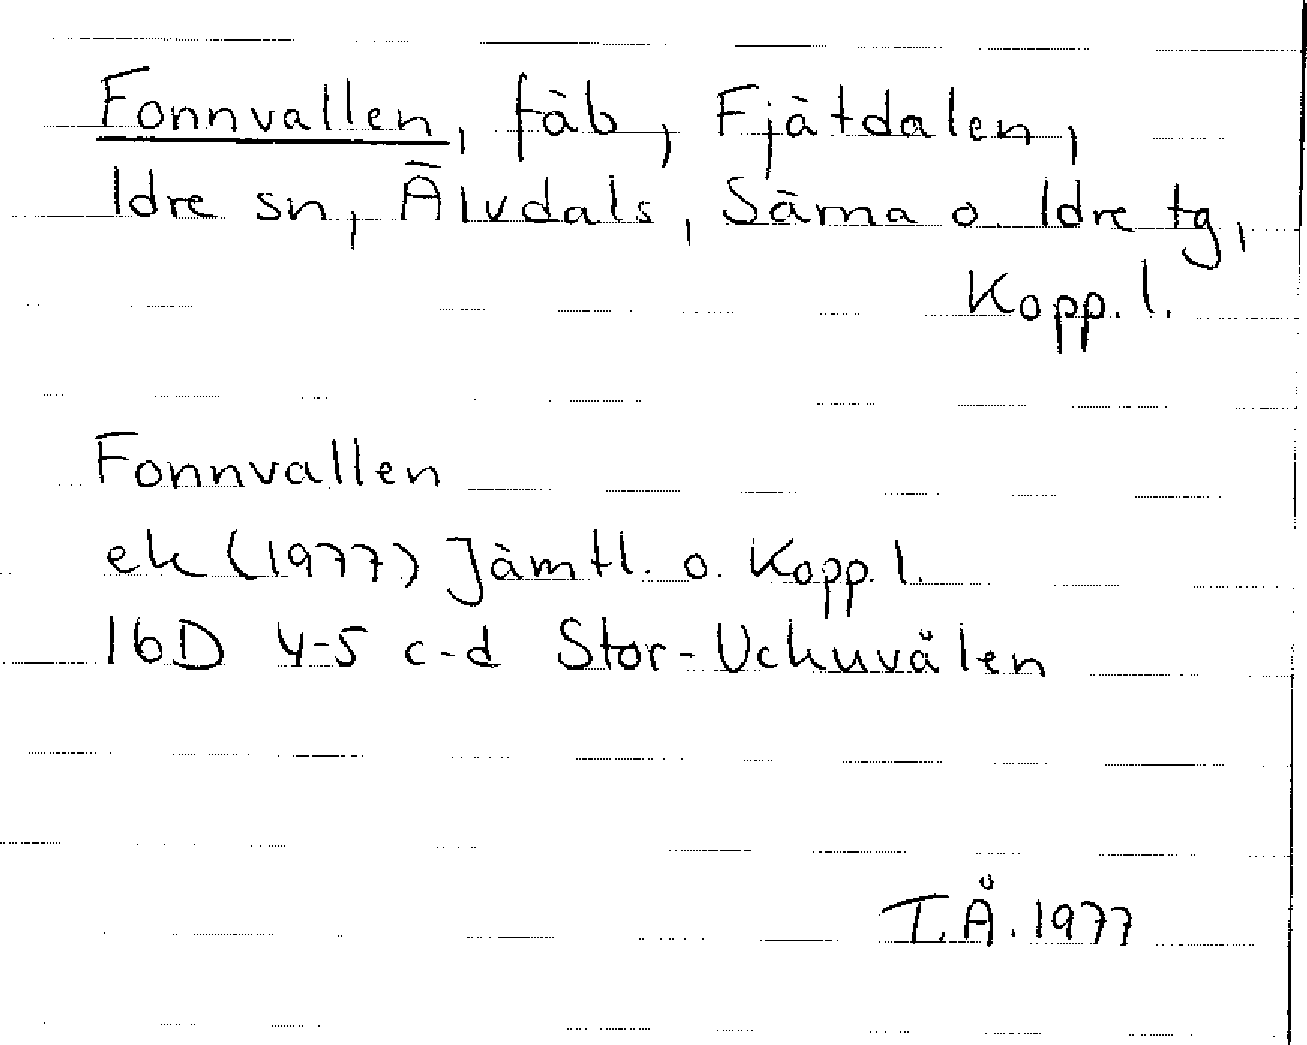 Fonnvallen, fäb, Fjätdalen,
Idre sn, Älvdals, Särna o. Idre tg,
Kopp. l.
Fonnvallen
ek (1977) Jämtl. o. Kopp. l.
16D 4-5 c-d Stor-Uckuvålen
I.Å. 1977